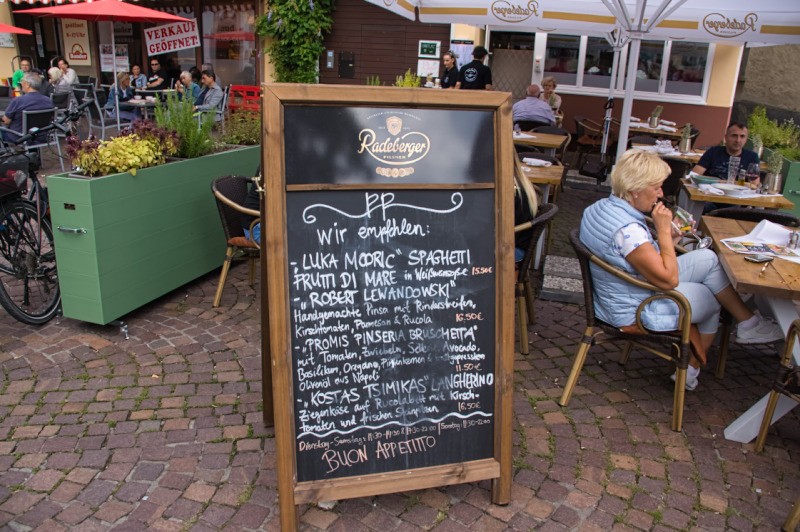 VERKAUF
GEÖFFNET
Radeberger
Radeberger
Radeberger
PILSNER
PP
wir empfehlen:
"LUKA MODRIC" SPAGHETTI
FRUTTI DI MARE in Weißweinsoße 15.50€
"ROBERT LEWANDOWSKI"
Handgemachte Pinsa mit Rinderstreifen,
Kirschtomaten, Parmesan & Rucola
16.50€
"PROMIS PINSERIA BRUSCHETTA"
mit Tomaten, Zwiebeln, Avocado,
Basilikum, Oregano, Pinienkernen &
Olivenöl aus Napoli 11.50€
"KOSTAS TSIMIKAS" LANGHERINO
Ziegenkäse auf Rucolabett mit Kirsch-
tomaten und frischen 16.50€
Dienstag-Samstag: 11:30-14:30 & 17:30-21:00 | Sonntag: 11:30-21:00
BUON APPETITO